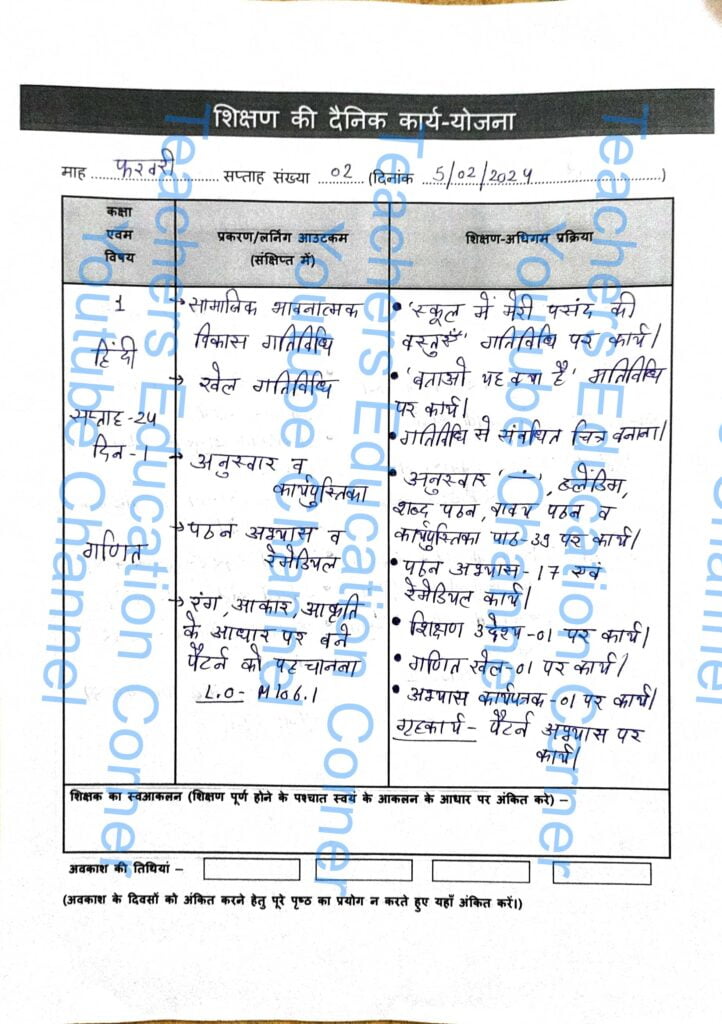 शिक्षण की दैनिक कार्य-योजना
माह फरवरी सप्ताह संख्या 02 (दिनांक 5/02/2024)
कक्षा
एवम
विषय
प्रकरण/लर्निंग आउटकम
(संक्षिप्त में)
शिक्षण-अधिगम प्रक्रिया
1
हिंदी
सप्ताह-24
दिन-1
गणित
→ सामाजिक भावनात्मक
विकास गतिविधि
→ खेल गतिविधि
→ अनुस्वार व
कार्यपुस्तिका
→ पठन अभ्यास व
रेमेडियल
→ रंग, आकार, आकृति
के आधार पर बने
पैटर्न को पहचानना
L.O- M106.1
• 'स्कूल में मेरी पसंद की
वस्तुएँ' गतिविधि पर कार्य।
• 'बताओ यह क्या है' गतिविधि
पर कार्य।
• गतिविधि से संबंधित चित्र बनाना।
• अनुस्वार '–ं–', ब्लेंडिंग,
शब्द पठन, वाक्य पठन व
कार्यपुस्तिका पाठ-39 पर कार्य।
• पठन अभ्यास-17 एवं
रेमेडियल कार्य।
• शिक्षण उद्देश्य-01 पर कार्य।
• गणित खेल-01 पर कार्य।
• अभ्यास कार्यपत्रक-01 पर कार्य।
गृहकार्य- पैटर्न अभ्यास पर
कार्य।
शिक्षक का स्वआकलन (शिक्षण पूर्ण होने के पश्चात स्वयं के आकलन के आधार पर अंकित करे) –
अवकाश की तिथियां –
(अवकाश के दिवसों को अंकित करने हेतु पूरे पृष्ठ का प्रयोग न करते हुए यहाँ अंकित करें।)
Teachers Education Corner
Youtube Channel
Teachers Education Corner
Youtube Channel
Teachers Education Corner
Youtube Channel